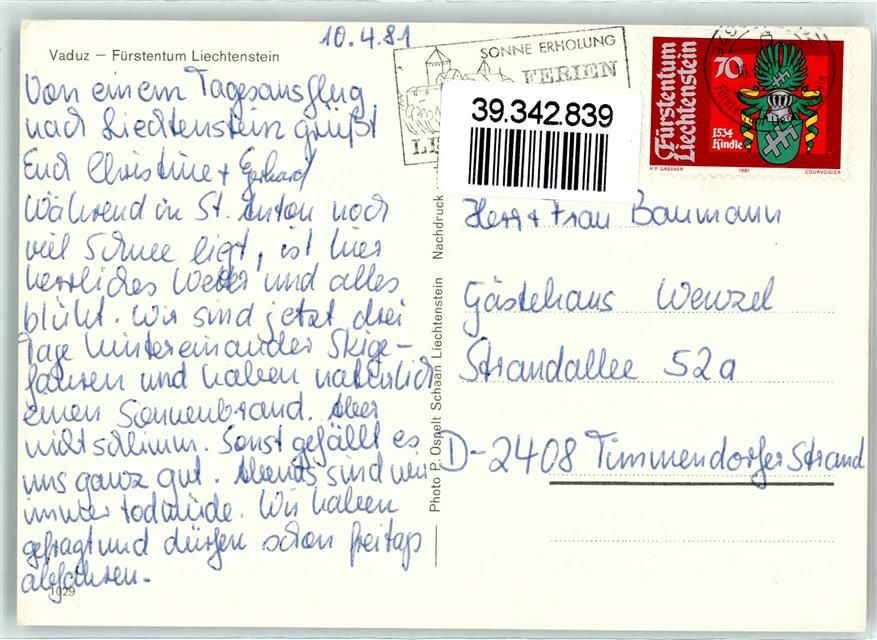 10.4.81
Vaduz – Fürstentum Liechtenstein
Von einem Tagesausflug
nach Liechtenstein grüßt
Euch Christine + Gerhard
Während in St. Anton noch
viel Schnee liegt, ist hier
herrliches Wetter und alles
blüht. Wir sind jetzt drei
Tage hintereinander Skige-
fahren und haben natürlich
einen Sonnenbrand. Aber
nicht schlimm. Sonst gefällt es
uns ganz gut. Abends sind wir
immer todmüde. Wir haben
gefragt und dürfen schon freitags
abfahren.
1029
Photo P. Ospelt Schaan Liechtenstein Nachdruck
SONNE ERHOLUNG
FERIEN
39.342.839
Fürstentum
Liechtenstein
70
1534
Kindle
H.P. GASSNER
1981
COURVOISIER
Herr + Frau Baumann
Gästehaus Wenzel
Strandallee 52a
D-2408 Timmendorfer Strand